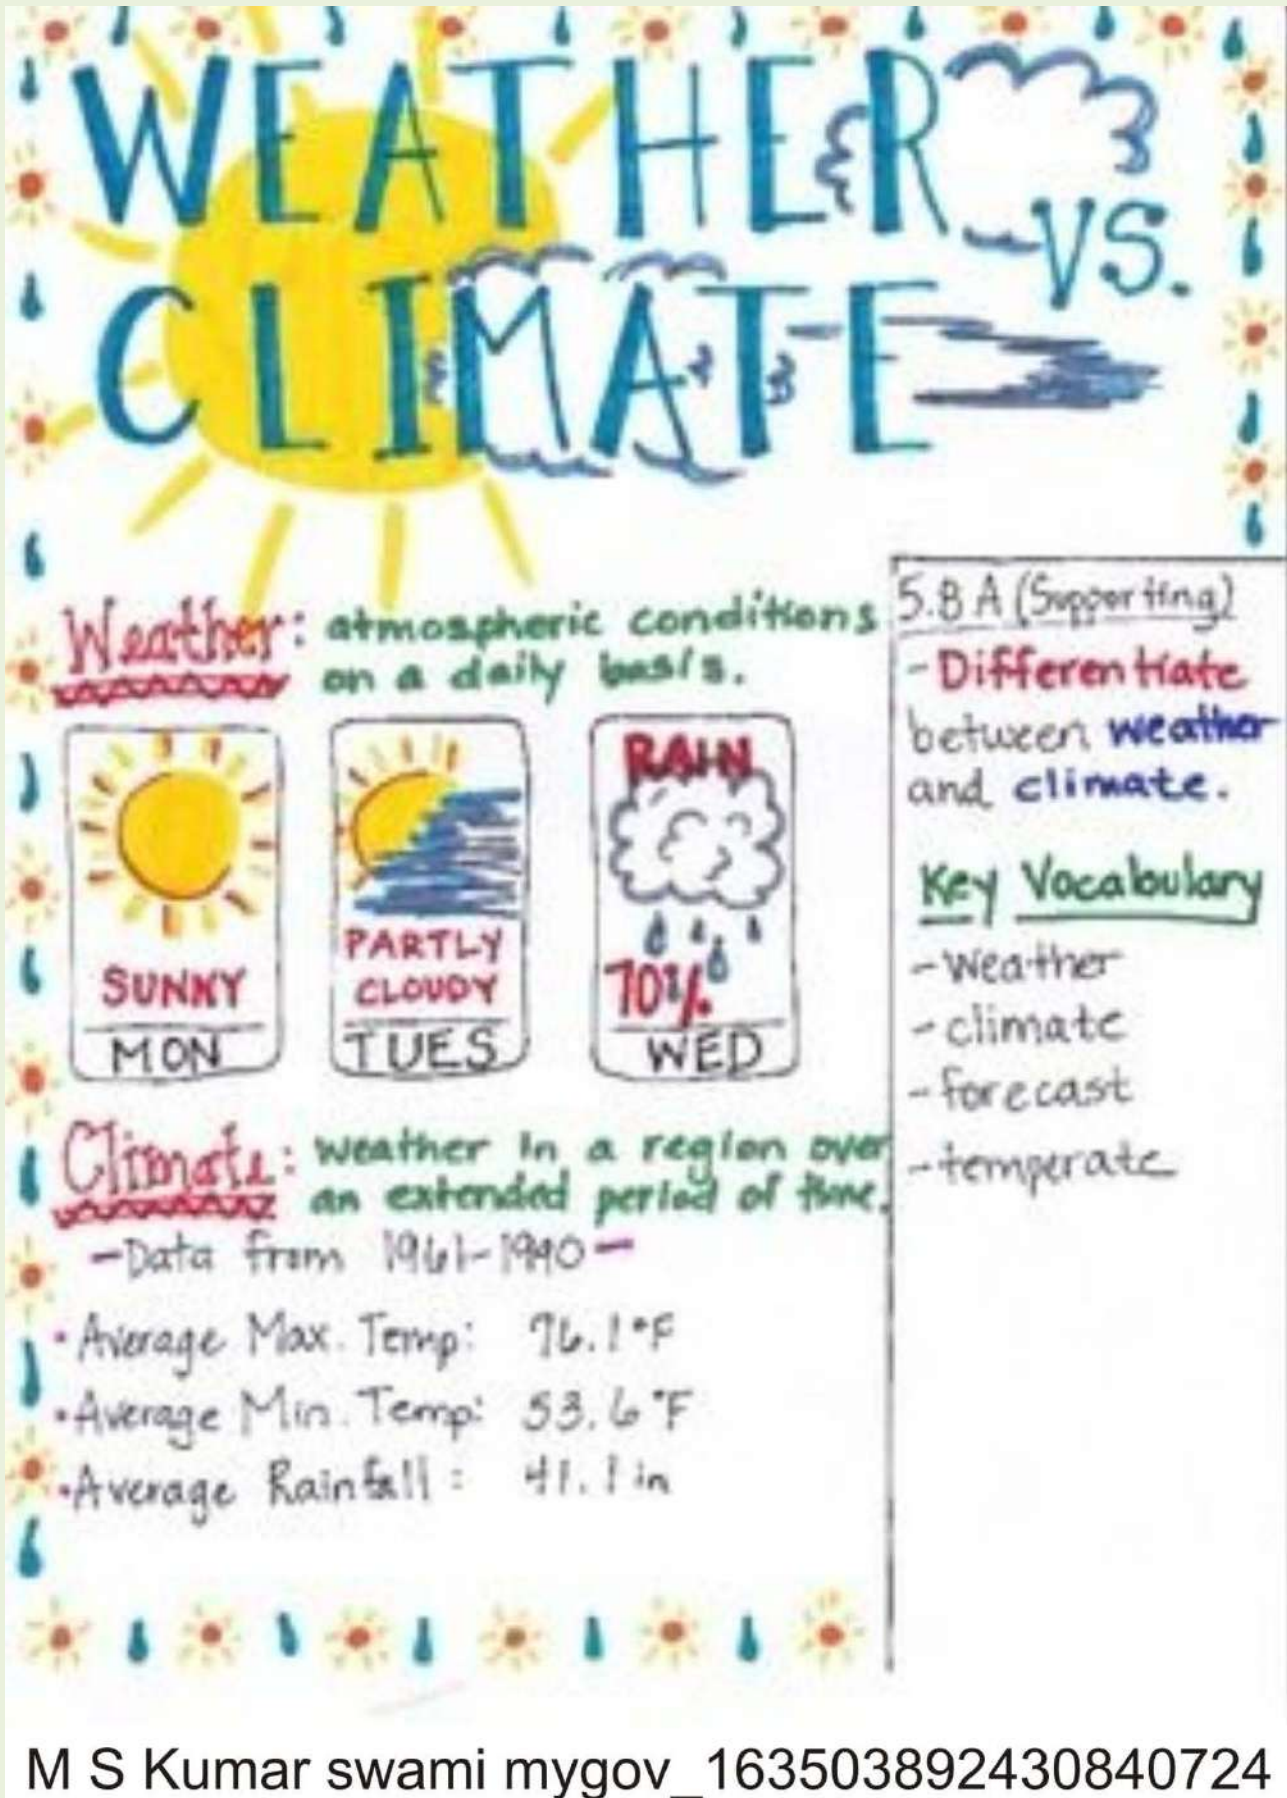 WEATHER
VS.
CLIMATE
Weather: atmospheric conditions
on a daily basis.
SUNNY
MON
PARTLY
CLOUDY
TUES
RAIN
70%
WED
Climate: weather in a region over
an extended period of time.
-Data from 1961-1990-
• Average Max. Temp: 76.1°F
• Average Min. Temp: 53.6°F
• Average Rainfall: 41.1 in
5.8 A (Supporting)
-Differentiate
between weather
and climate.
Key Vocabulary
-weather
-climate
-forecast
-temperate
M S Kumar swami mygov_163503892430840724